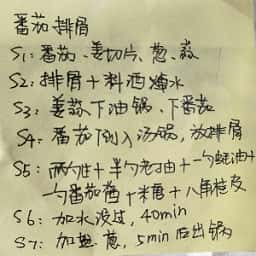 番茄排骨
S1: 番茄、姜切片、葱、蒜
S2: 排骨+料酒焯水
S3: 姜蒜下油锅、下番茄
S4: 番茄下倒入汤锅，放排骨
S5: 两勺生+半勺老抽+一勺蚝油+
一勺番茄酱+米糖+八角桂皮
S6: 加水没过, 40min
S7: 加葱, 5min后出锅